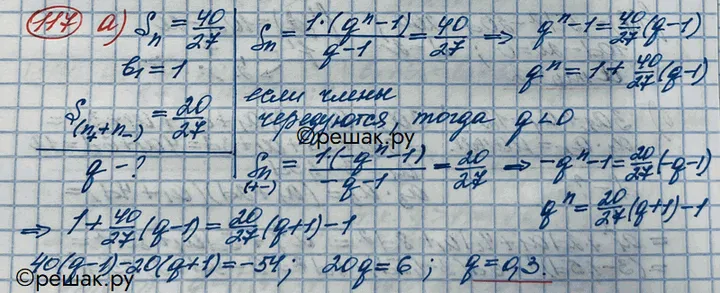 117 а) Sn = 40/27
b1 = 1
S(n+ + n-) = 20/27
q - ?
Sn = 1·(q^n - 1)/(q - 1) = 40/27 ⇒ q^n - 1 = 40/27 (q - 1)
q^n = 1 + 40/27 (q - 1)
если члены
чередуются, тогда q < 0
©решак.ру
Sn (+-) = 1(-q^n - 1)/(-q - 1) = 20/27 ⇒ -q^n - 1 = 20/27 (-q - 1)
q^n = 20/27 (q + 1) - 1
⇒ 1 + 40/27 (q - 1) = 20/27 (q + 1) - 1
40(q - 1) - 20(q + 1) = -54; 20q = 6; q = 0,3.
©решак.ру